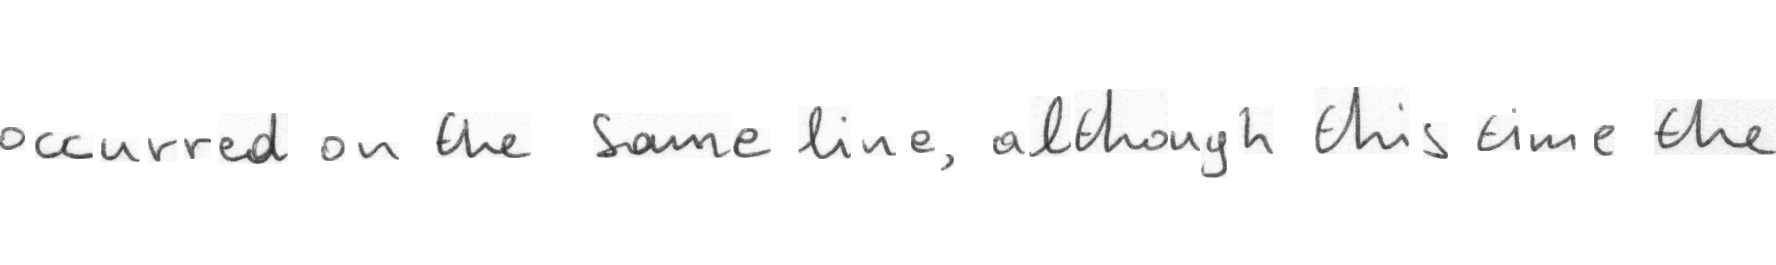 occurred on the same line, although this time the